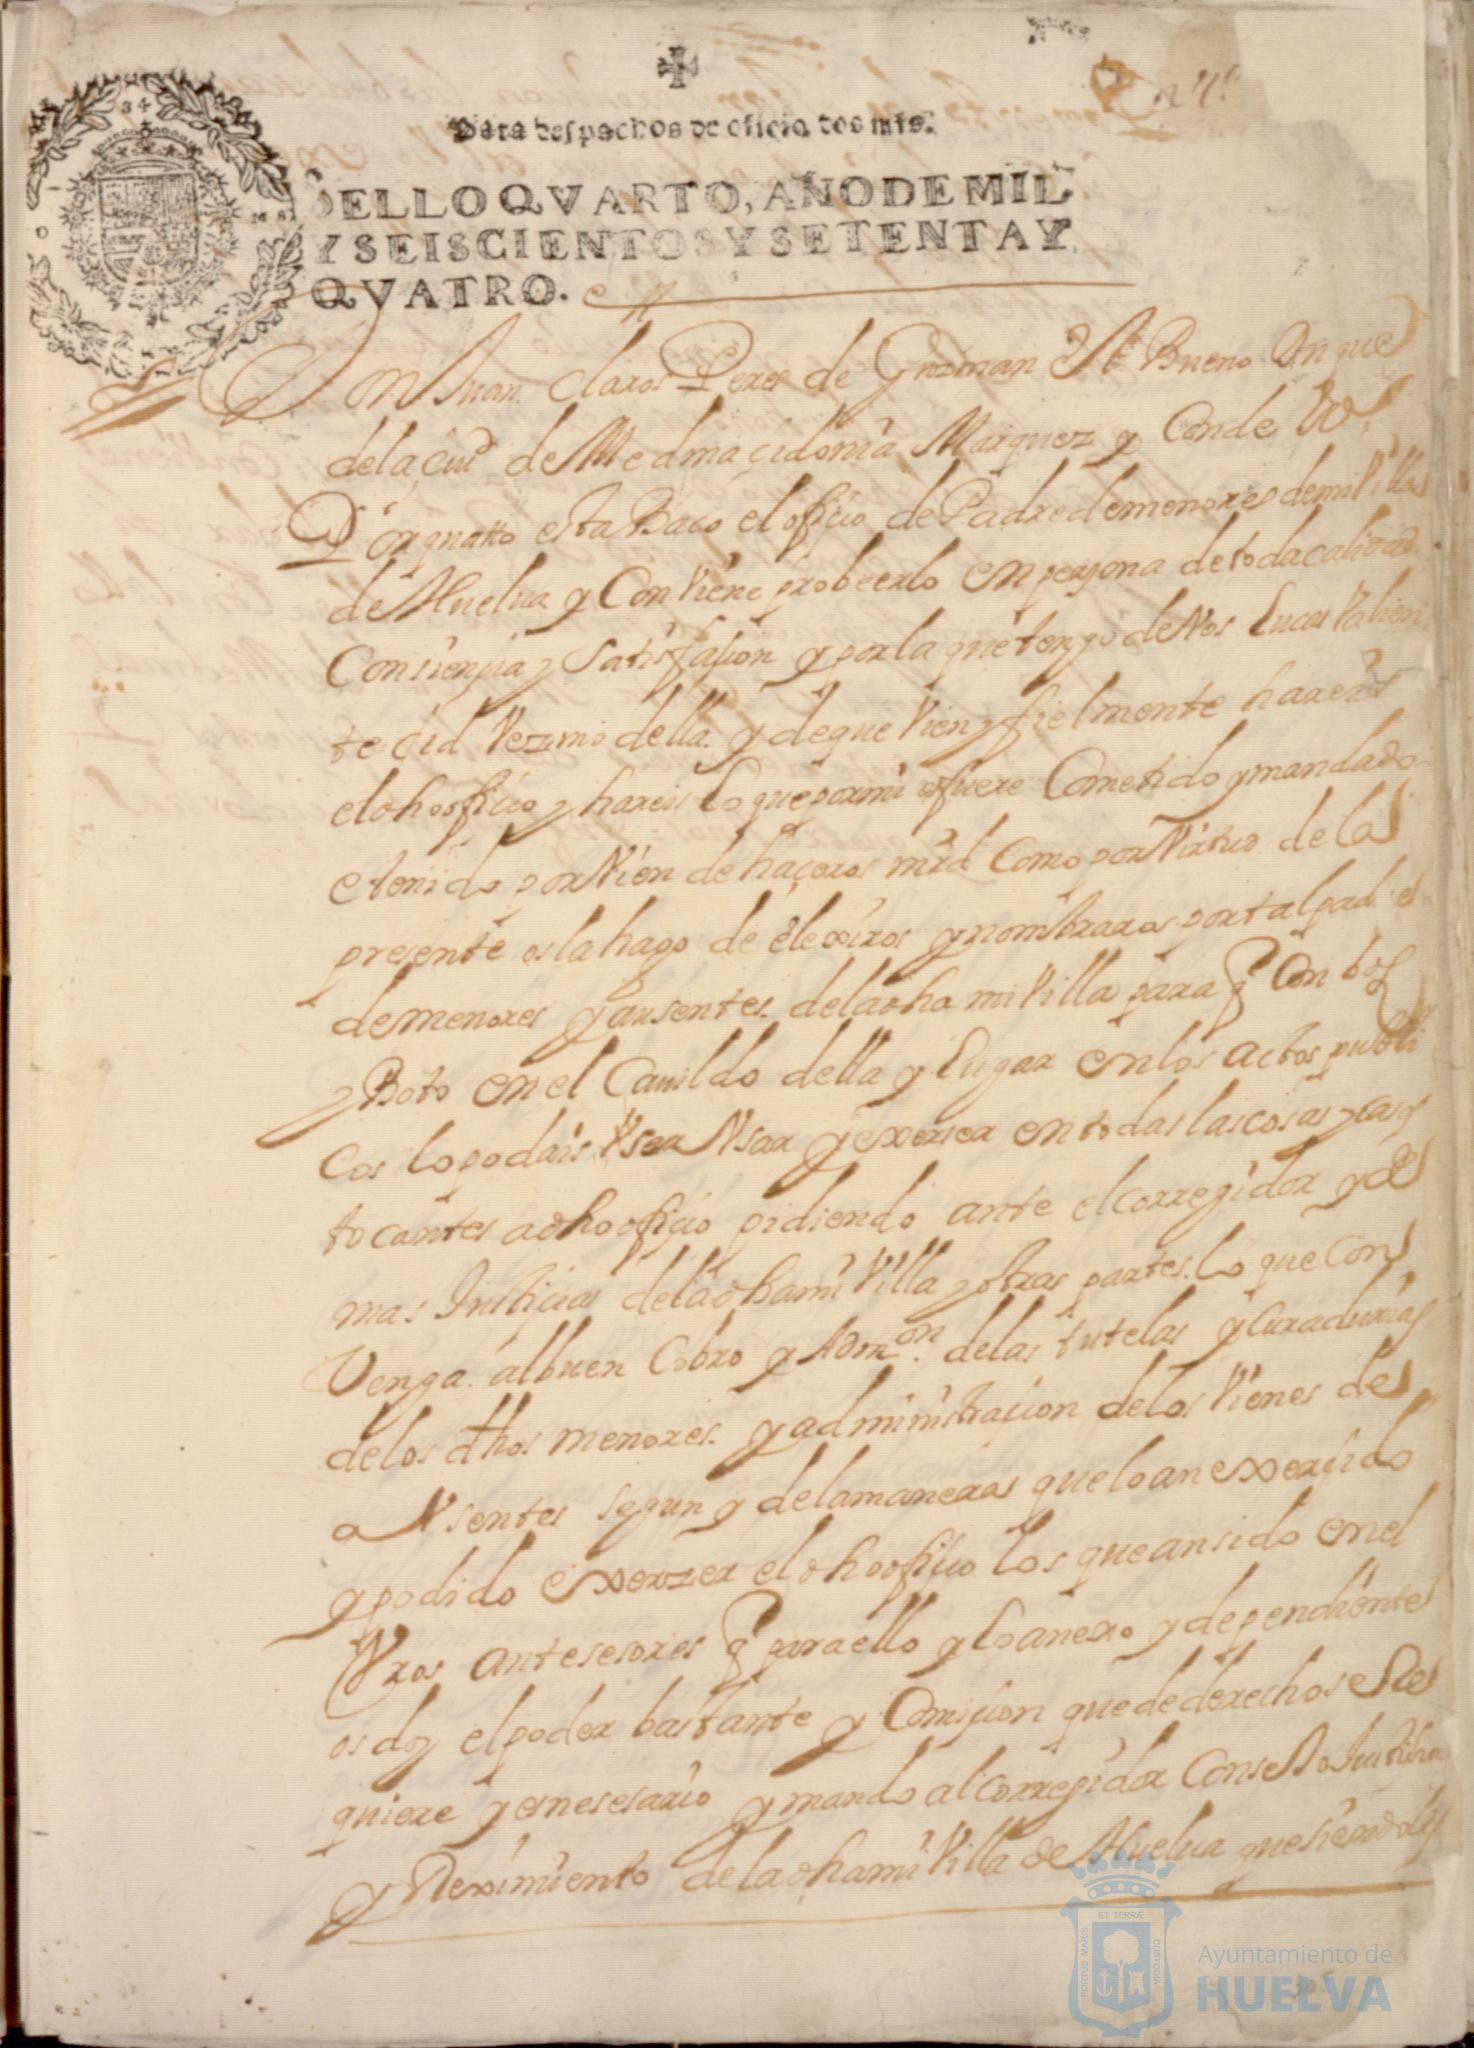 Para despachos de oficio dos mrs.
SELLO QVARTO, AÑO DE MIL
Y SEISCIENTOS Y SETENTA Y
QVATRO.
Don Juan Claros Peres de Guzman el Bueno Duque
de la ciud de Medina çidonia Marquez y Conde
Por quanto esta Baco el ofiçio de Padre de menores de mi Villa
de Huelua y Conviene probeerlo en persona de toda calidad
Consiençia y Satisfaçion y por la que tengo de Vos Lucas Valien
te çid Vezino della y de que Vien y fielmente hareis
el dho ofiçio y hareis lo que por mi os fuere Cometido y mandado
e tenido por Vien de haçeros mrd Como por Virtud de la
presente os la hago de elexiros y nombraros por tal padre
de menores y ausentes de la dha mi Villa para q Con boz
y Boto en el Cauildo della y Lugar en los actos publi
cos lo podais Vsar y exerser en todas las cosas y casos
tocantes a dho ofiçio pidiendo ante el corregidor y de
mas Justiçias de la dha mi Villa y otras partes lo que Con
Venga al buen Cobro y Admon. de las tutelas y Curadurias
de los dhos menores y administraçion de los Vienes de
aVsentes segun y de la manera que lo an exersido
y podido exerzer el dho ofiçio los que an sido en el
Vros antesesores q para ello y lo anexo y dependiente
os doy el poder bastante y Comiçion que de derecho se Re
quiere y es nesesario y mando al corregidor Consejo Justiçia
y Reximiento de la dha mi Villa de Huelua que siendoles
PORTUS MARIS
ET TERRÆ
CUSTODIA
Ayuntamiento de
HUELVA